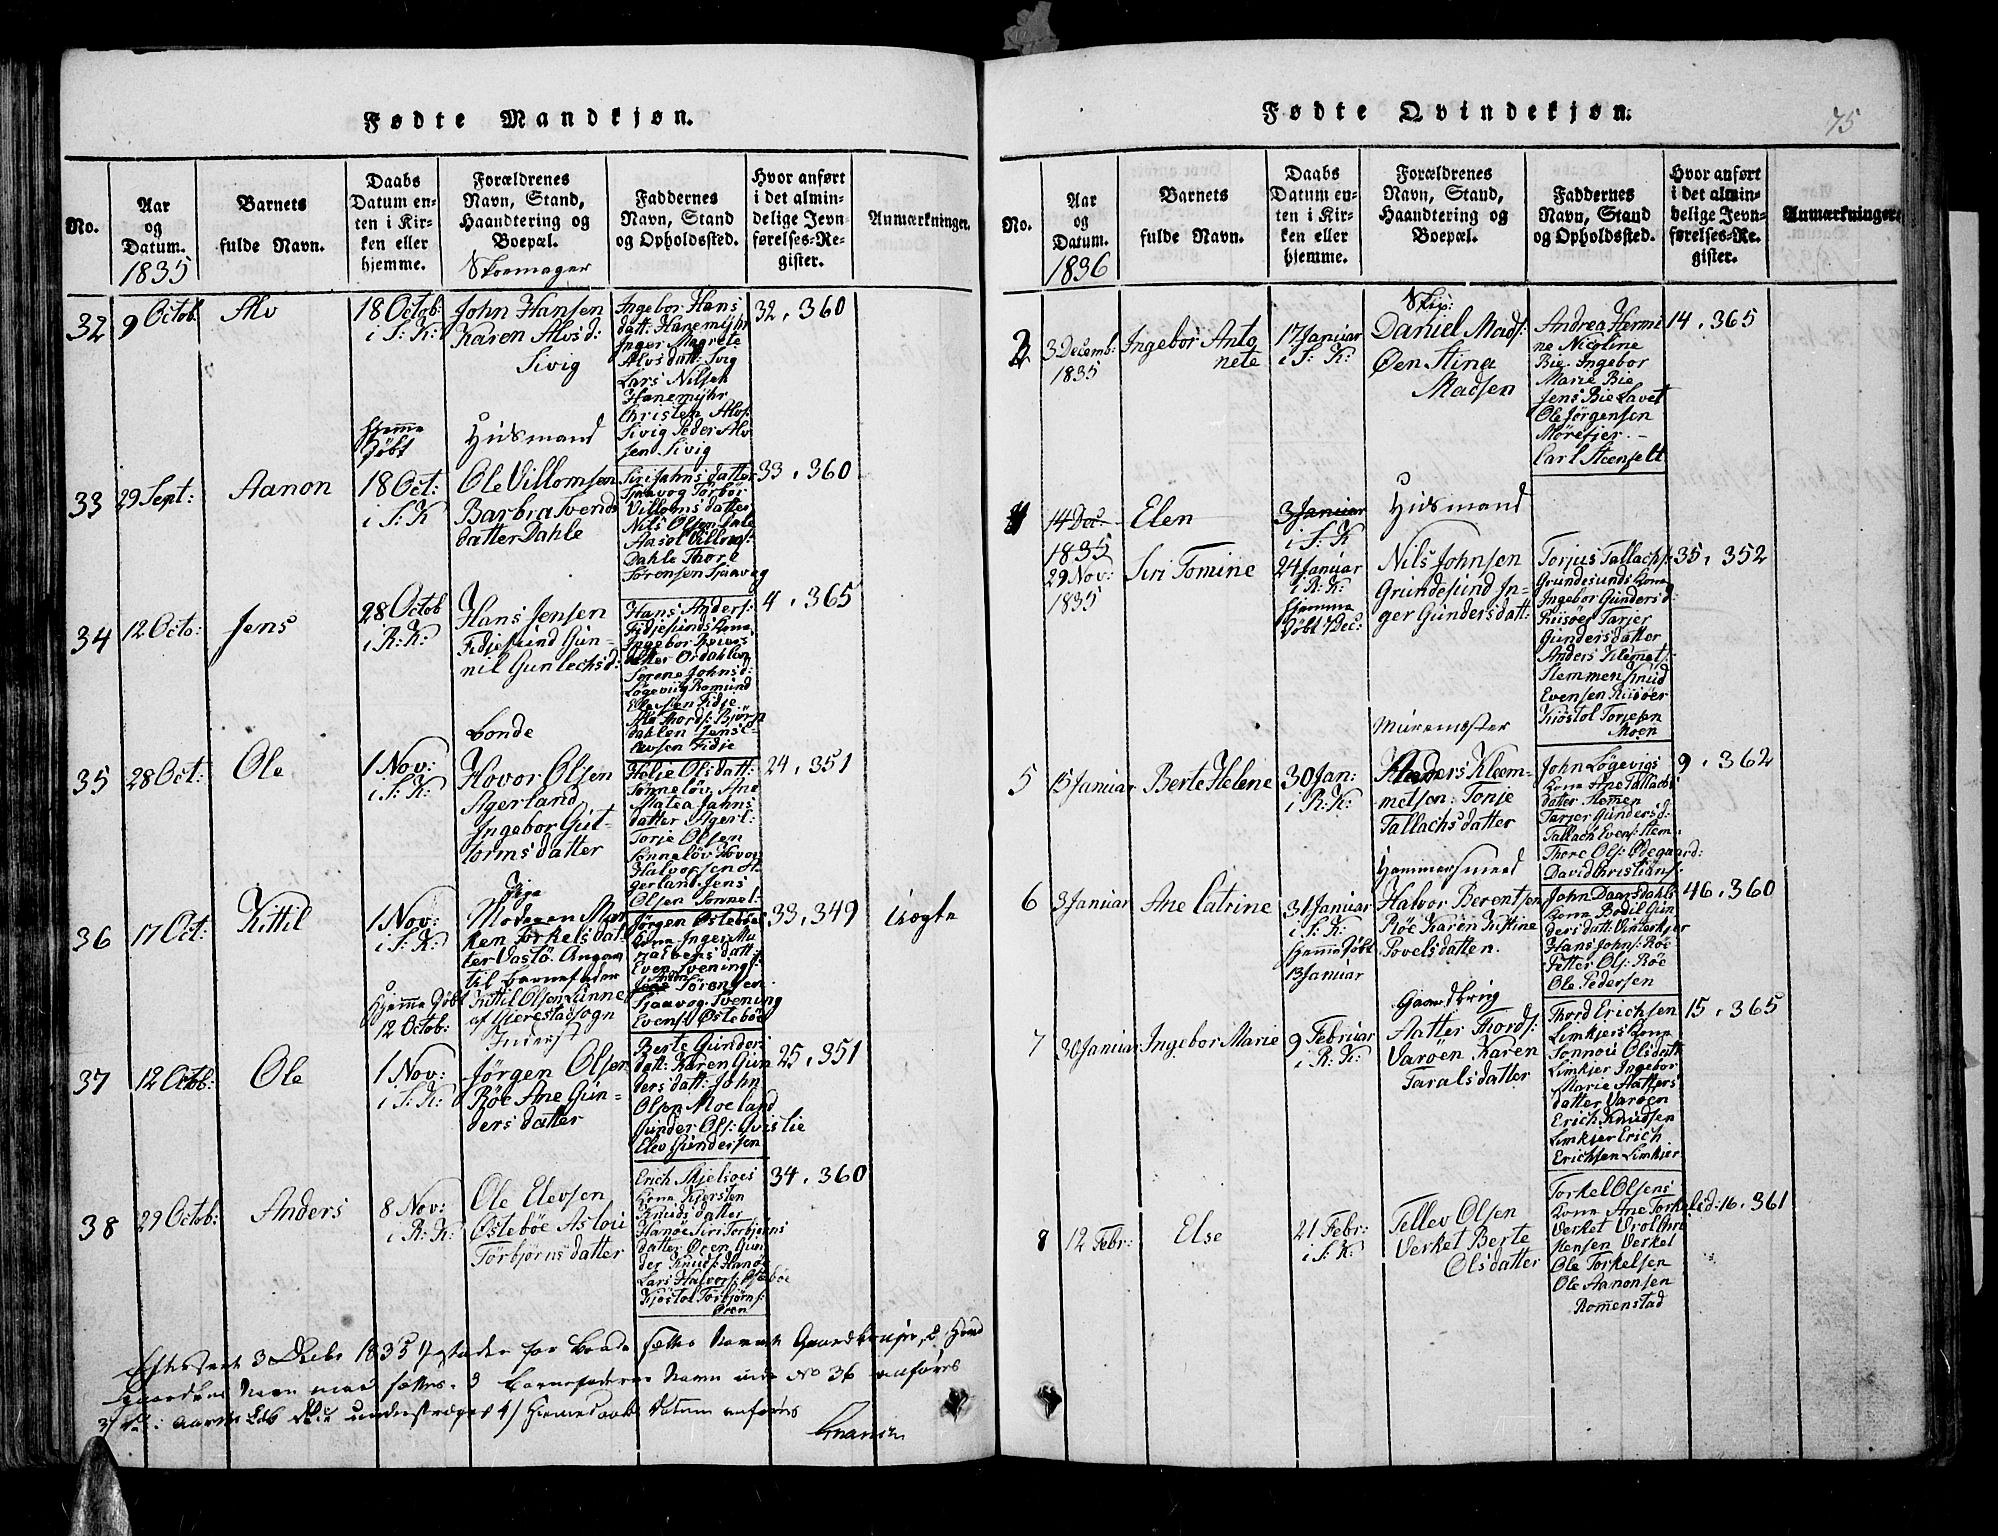 Fødte Mandkjøn.
No.
Aar
og
Datum.
1835
Barnets
fulde Navn.
Daabs
Datum en-
ten i Kir-
ken eller
hjemme.
Forældrenes
Navn, Stand,
Haandtering og
Boepæl.
Faddernes
Navn, Stand
og Opholdssted.
Hvor anført
i det almin-
delige Jevn-
førelses-Re-
gister.
Anmærkninger.
32
9 Octob:
Alv
18 Octob:
i S: K:
Skoemager
John Hansen
Karen Alvsd:
Sivig
Ingebor Hans
datt: Hanemijhr
Inger Magrete
Alvsdatt: Svig
Lars Nilsen
Hanemijhr
Christen Alvs:
Sivig Peder Alv
sen Sivig
32, 360
33
29 Sept:
Aanon
Hjemme
Døbt
18 Oct:
i S: K
Huusmand
Ole Villomsen
Barbra Svends
datter Dahle
Siri Jahnsdatter
Sjaavog Torbor
Villomsdatter
Nils Olsen Dale
Aasol Villoms:
Dahle Thore
Sørensen Sjaavog
33, 360
34
12 Octo:
Jens
28 Octob
i R: K:
Hans Jensen
Fidjesund Gun-
nil Gunlechsd:
Hans Anders:
Fidjesunds Kone
Ingebor Roiers
datter Ordahlen
Sørene Johnsd:
Løgeviig Romund
Olesen Fidje
Ale Thords: Bjørn
dahlen Jens E-
levsen Fidje
4, 365
35
28 Oct:
Ole
1 Nov:
i S: K:
Bonde
Hovor Olsen
Agerland
Ingebor Gut-
tormsdatter
Helje Olsdatt:
Sønneløv, Ane
Matea Jahns
datter Agerl:
Torje Olsen
Sønneløv Hovor
Halvorsen A-
gerland Jens
Olsen Sønnel:
24, 351
36
17 Oct:
Kittil
1 Nov:
i S: K:
Hjemme Døbt
12 Octob:
Pige
Moderen Mar
ken Torkelsdat
ter Vastø. Angav
til Barnefader
Kittil Olsen Lunne
af Hierestad sogn
Jørgen Østebøes
Kone Inger Ma
Even Svenings:
Anon
Sørensen
Sjaavog Svening
Evens: Østebøe
33, 349
Uægte
37
12 Octob:
Ole
1 Nov:
i S: K:
Inderst
Jørgen Olsen
Røe Ane Gun-
dersdatter
Berte Gunders
datt: Karen Gun
dersdatt: John
Olsen Moeland
Gunder Ols: Qvislie
Elev Gundersen
25, 351
38
29 Octob:
Anders
8 Nov:
i R: K:
Ole Elevsen
Østebøe Aslou
Torbjørnsdatter
Erich Skjelsøes
Kone Kjersten
Knudsdatter
Hanøe Siri Torbjørns
datter Øren Gun
der Knuds: Hanø
Lars Halvors: Østebøe
Kjøstol Torbjørns:
Øren
34, 360
Fødte Qvindekjøn.
75
No.
Aar
og
Datum.
1836
Barnets
fulde Navn.
Daabs
Datum en-
ten i Kir-
ken eller
hjemme.
Forældrenes
Navn, Stand,
Haandtering og
Boepæl.
Faddernes
Navn, Stand
og Opholdssted.
Hvor anført
i det almin-
delige Jevn-
førelses-Re-
gister.
Anmærkninger.
3 Decemb:
1835
Ingebor Anto
nete
17 Januar
i S: K:
Skip:
Daniel Mads:
Øen Stina
Madsen
Andrea Hermi
ne Nicoline
Bie, Ingebor
Marie Bie
Jens Bie Lavet
Ole Jørgensen
Mørefjer. –
Carl Steenselt
14, 365
14 Dec:
1835
Elen
3 Januar
i S: K
Huusmand
29 Nov:
1835
Siri Tomine
24 Januar
i R: K:
Hjemme
Døbt 7 Dec:
Nils Johnsen
Grundesund In-
ger Gundersdatt:
Torjus Tallachs:
Grundesunds Kone
Ingebor Gundersd:
Riisøe Tarjer
Gundersdatter
Anders Klemet:
Stemmen Knud
Evensen Riisøer
Kjøstol Torjesen
Moen
35, 352
5
15 Januar
Berte Helene
30 Jan:
i R: K:
Muremester
Anders Kleem-
metsen: Tonje
Tallachsdatter
John Løgevigs
Kone Ane Tallachs
datter Stemen
Tarjer Gundersd:
Tallach Evens: Stem:
Thore Ols: Ødegaard:
David Christians:
9, 362
6
3 Januar
Ane Catrine
31 Januar
i S: K
Hjemme Døbt
13 Januar
Hammersmed
Halvor Berentsen
Røe Karen Kistine
Povelsdatten.
John Daarsdahls
Kone Bodil Gun
dersdatt: Vinterkjer
Hans Johns: Røe
Fetter Ols: Røe
Ole Pedersen
46, 360
7
30 Januar
Ingebor Marie
9 Februar
i R: K:
Gaardbrug
Aatter Thords:
Varøen Karen
Taralsdatter
Thord Erichsen
Limkjers Kone
Sonnou Olsdatt
Limkjer Ingebor
Marie Aatters
datter Varøen
Erich Knudsen
Limkjer Erich
Erichsen Limkjer
15, 365
8
12 Febr:
Else
21 Febr:
i S: K:
Tellev Olsen
Verket Berte
Olsdatter
Torkel Olsens
Kone Ane Torkelsd:
Verket Vrol Hri
stensen Verket
Ole Torkelsen
Ole Aanonsen
Romenstad
16, 361